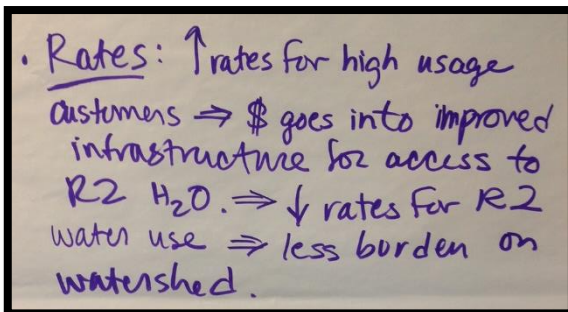 • Rates: ↑ rates for high usage
customers ⇒ $ goes into improved
infrastructure for access to
R2 H₂O. ⇒ ↓ rates for R2
water use ⇒ less burden on
watershed.